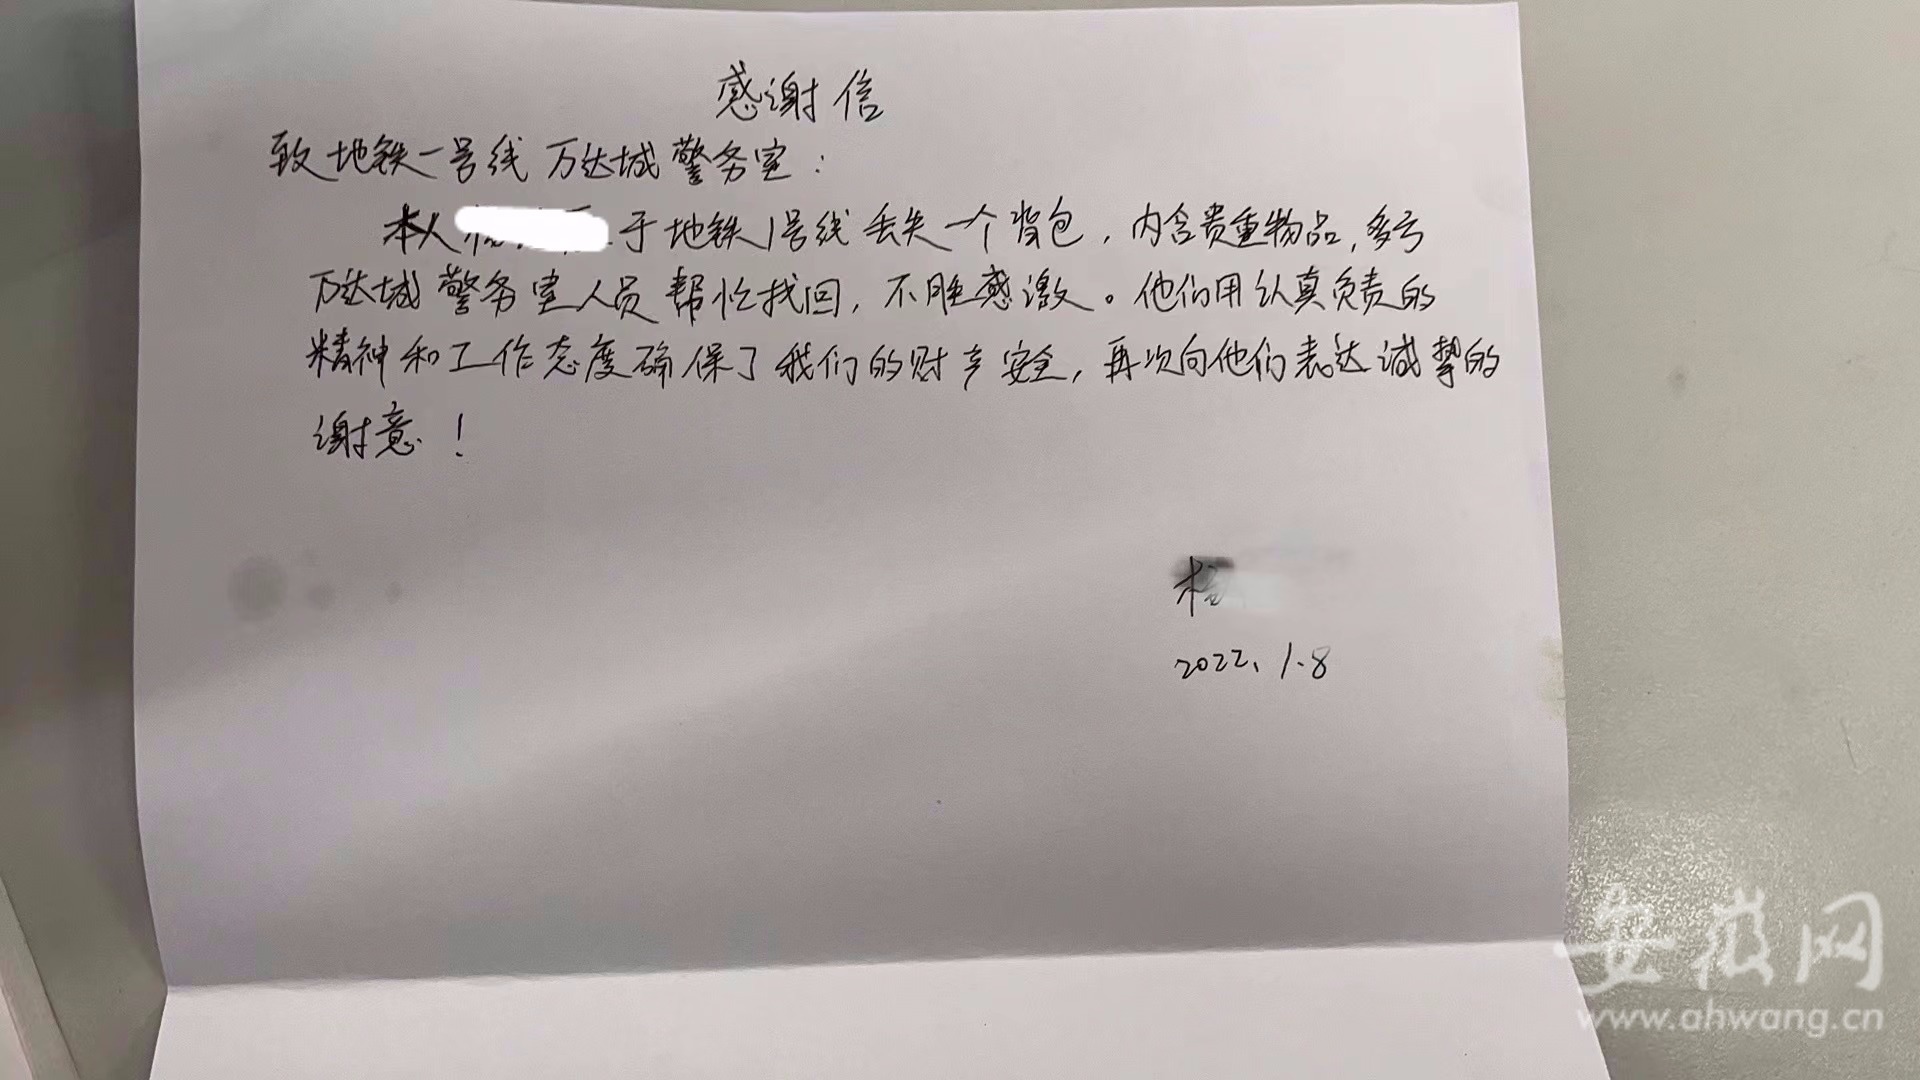 感谢信
致地铁一号线万达城警务室：
本人 于地铁1号线丢失一个背包，内含贵重物品，多亏
万达城警务室人员帮忙找回，不胜感激。他们用认真负责的
精神和工作态度确保了我们的财产安全，再次向他们表达诚挚的
谢意！
2022.1.8
安徽网
www.ahwang.cn